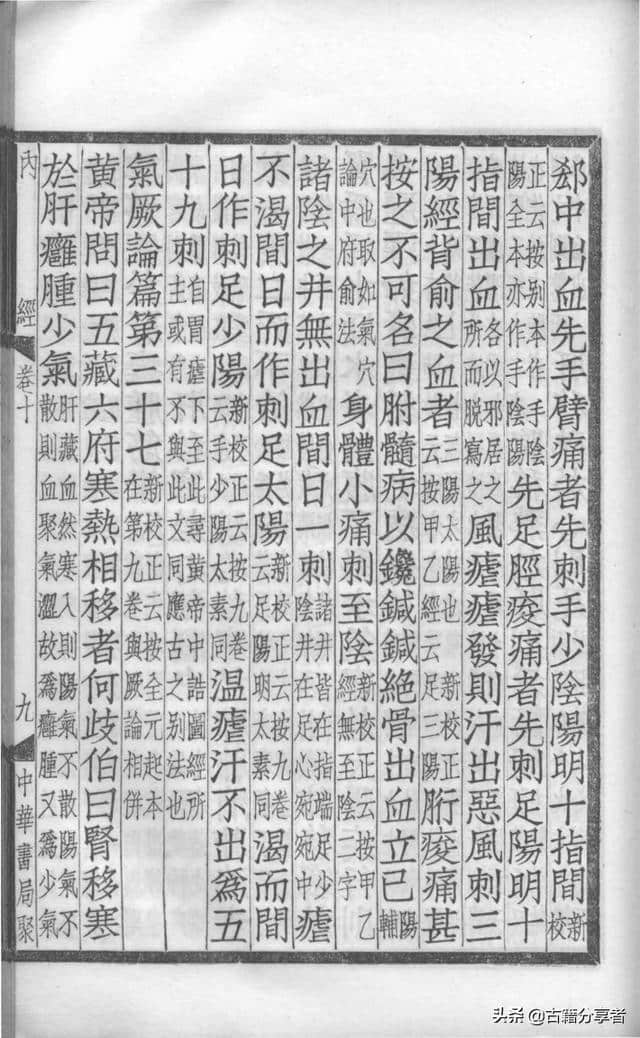 郄中出血先手臂痛者先刺手少陰陽明十指間新校
正云按别本作手陰陽全本亦作手陰陽先足脛痠痛者先刺足陽明十
指間出血各以邪居之所而脫寫之風瘧瘧發則汗出惡風刺三
陽經背俞之血者三陽太陽也新校正云按甲乙經云足三陽胻痠痛甚
按之不可名曰胕髓病以鑱鍼鍼絶骨出血立已陽輔
穴也取如氣穴論中府俞法身體小痛刺至陰新校正云按甲乙經無至陰二字
諸陰之井無出血間日一刺諸井皆在指端足少陰井在足心宛宛中瘧
不渴間日而作刺足太陽新校正云按九卷云足陽明太素同渴而間
日作刺足少陽新校正云按九卷云手少陽太素同温瘧汗不出爲五
十九刺自胃瘧下至此尋黄帝中誥圖經所主或有不與此文同應古之别法也
氣厥論篇第三十七新校正云按全元起本在第九卷與厥論相併
黄帝問曰五藏六府寒熱相移者何歧伯曰腎移寒
於肝癰腫少氣肝藏血然寒入則陽氣不散陽氣不散則血聚氣澀故爲癰腫又爲少氣
內經 卷十 九 中華書局聚
头条 @古籍分享者